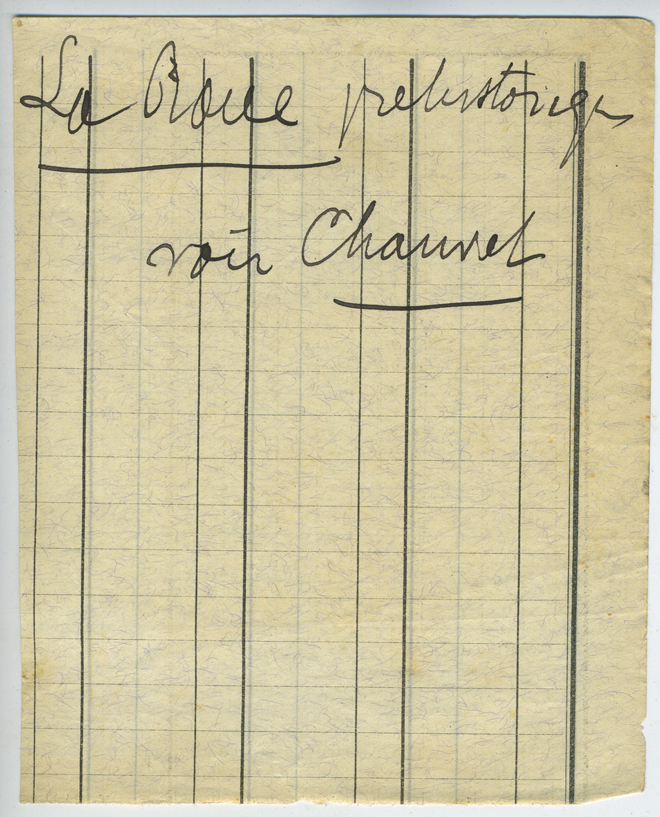 La Roue préhistorique
voir Chauvet